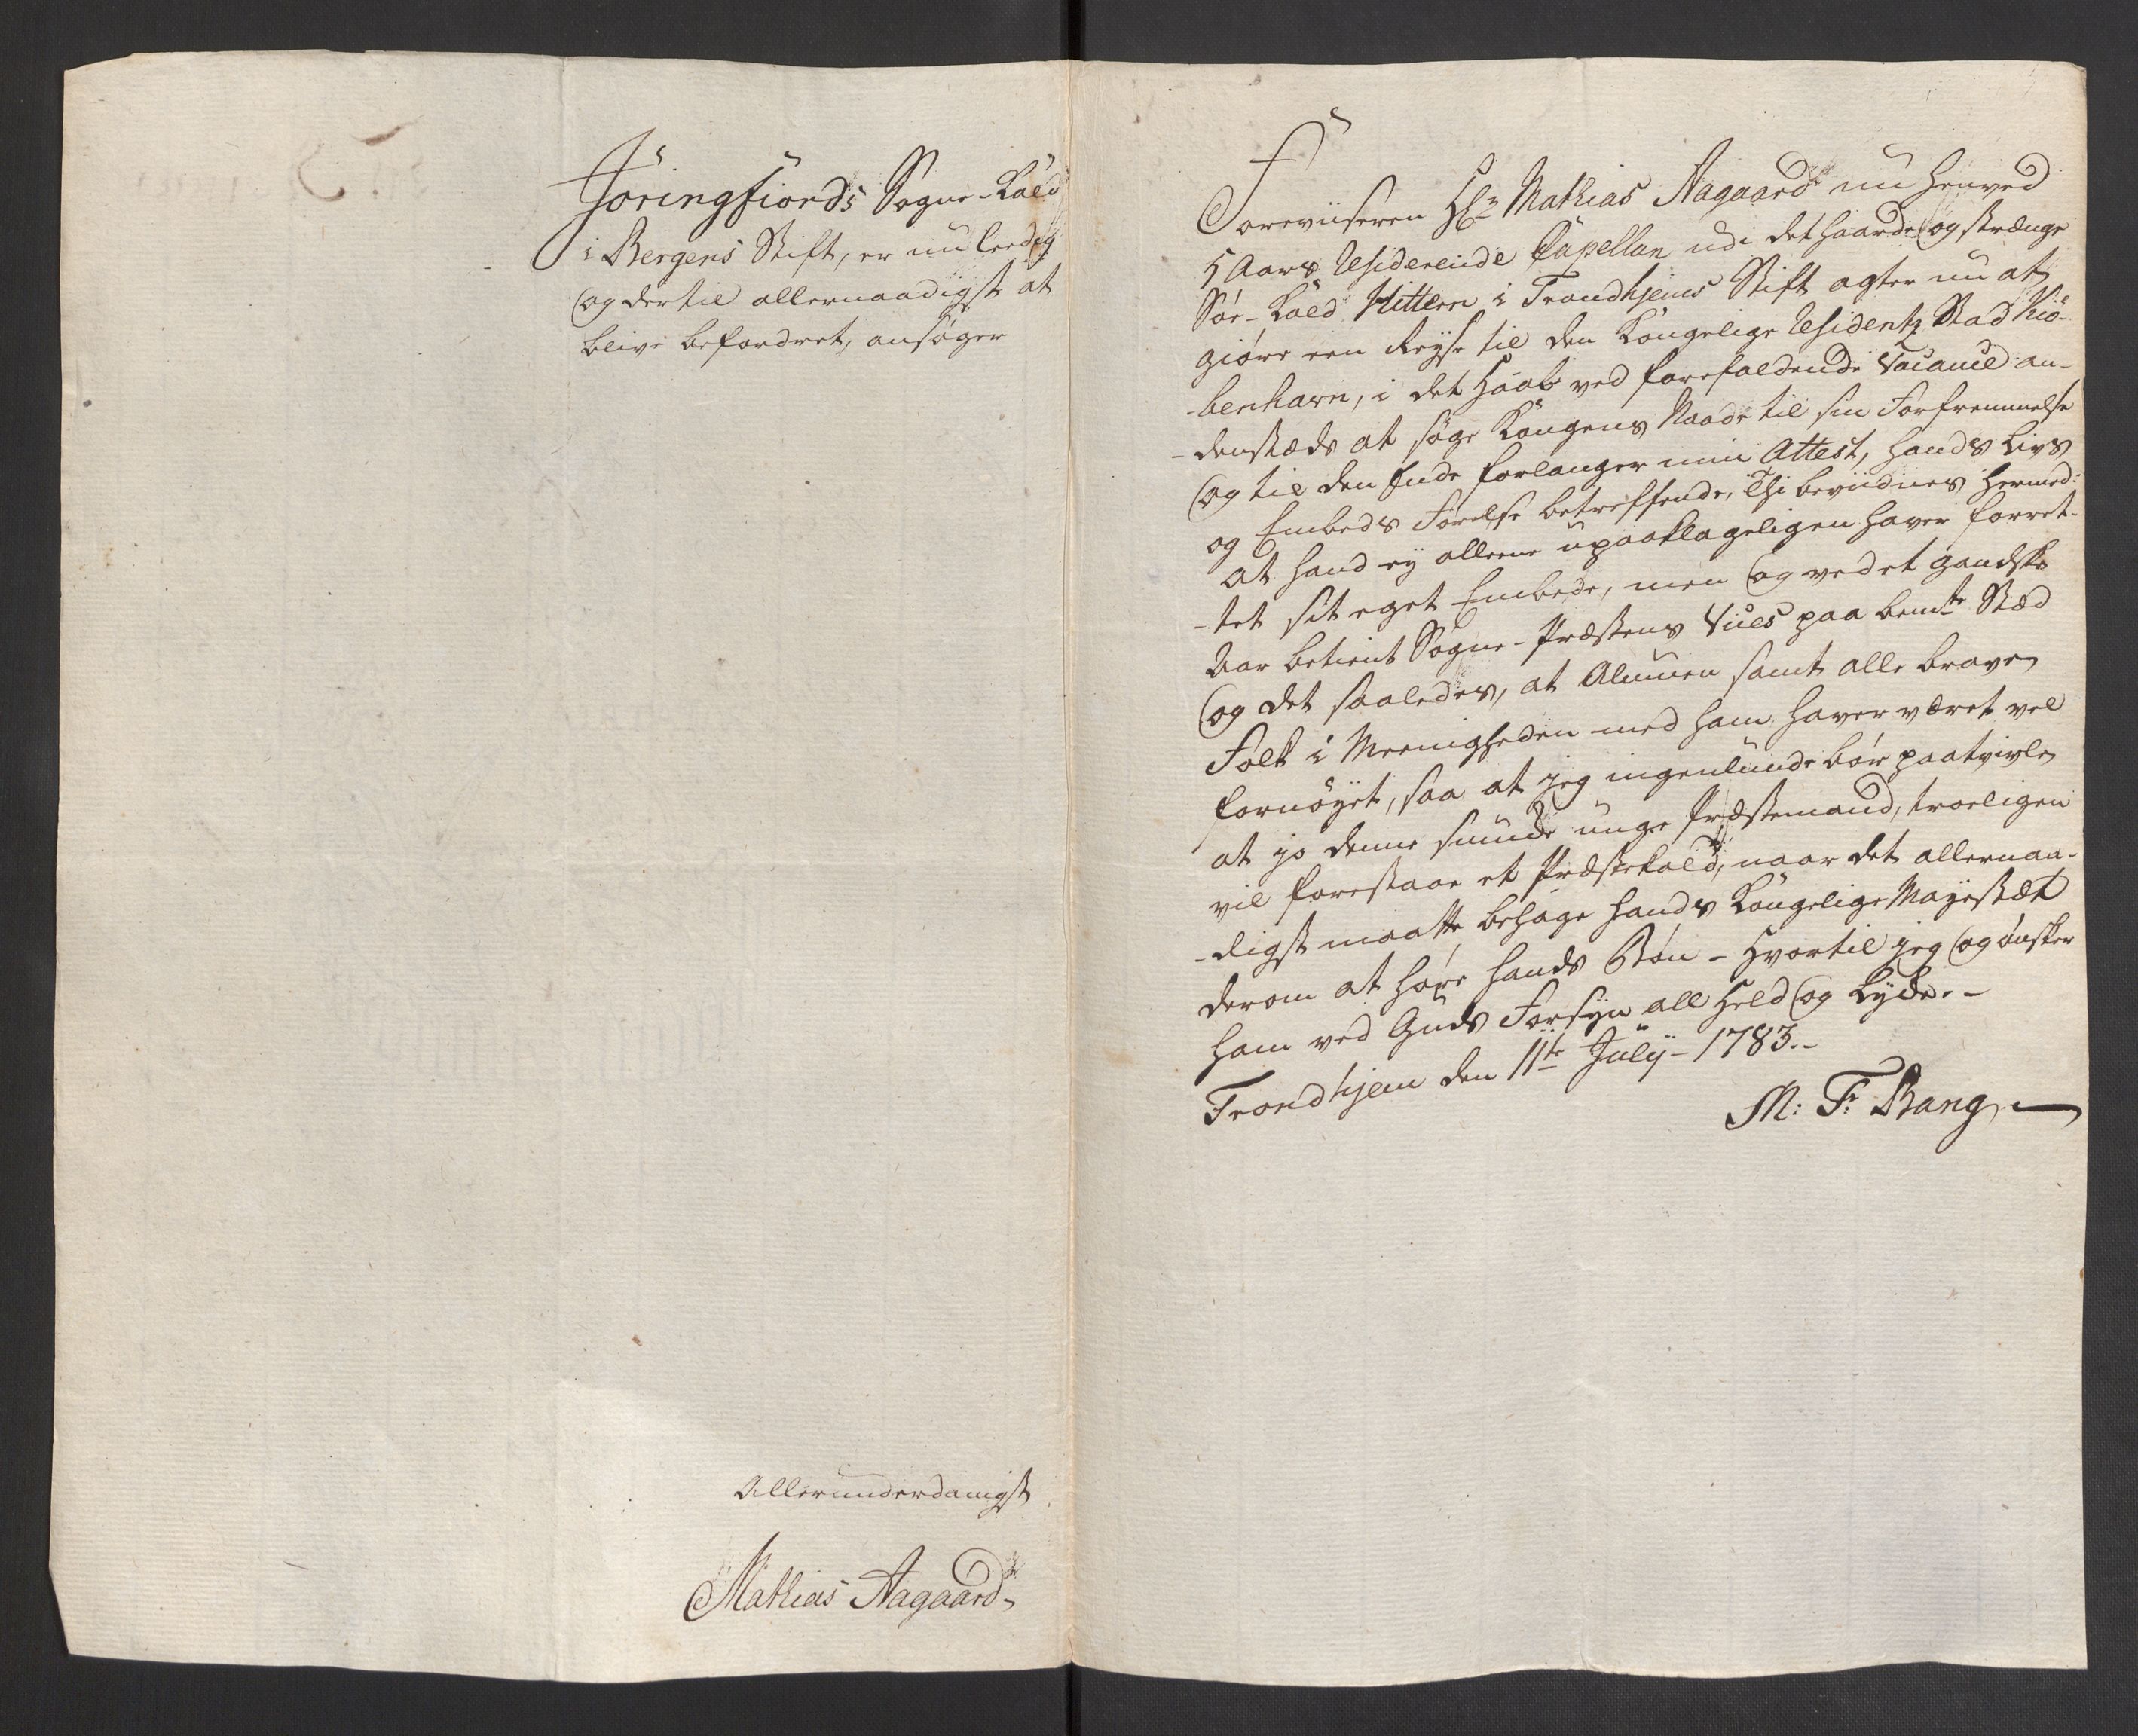 Jöringfiords Sogne-Kald
i Bergens Stift, er nu leedig
og dertil allernaadigst at
blive befordret, ansøger
Allerunderdanigst
Mathias Aagaard
Foreviiseren Hr Mathias Aagaard nu henved
5 Aars Residerende Capellan udi det haarde og strænge
Söe-Kald Hitteren i Trondhjems Stift agter nu at
giöre een Reyse til den Kongelige Residentz Stad Kiö-
benhavn, i det Haab ved forefaldende Vacance an-
denstæds at søge Kongens Naade til sin Forfremmelse
og til den Ende forlanger min Attest, hands Livs
og Embeds Førelse betreffende, Thi bevidnes hermed:
at hand ey alleene upaaklageligen haver forret-
tet sit eget Embede, men og ved et gandske
Aar betient Sogne-Præstens Vices paa bemte Stæd
og det saaledes, at Almuen samt alle brave
Folk i Meenigheden med ham haver været vel
fornøyet, saa at jeg ingenlunde bør paatvivle
at jo denne smucke unge Præstemand, troeligen
vil forestaae et Præstekald, naar det allernaa-
digst maatte behage hands Kongelige Mayestæt
derom at høre hands Bön - Hvortil jeg og ønsker
ham ved Guds Forsyn all Held og Lycke. -
Trondhjem den 11te July - 1783. -
M: Fr: Bang